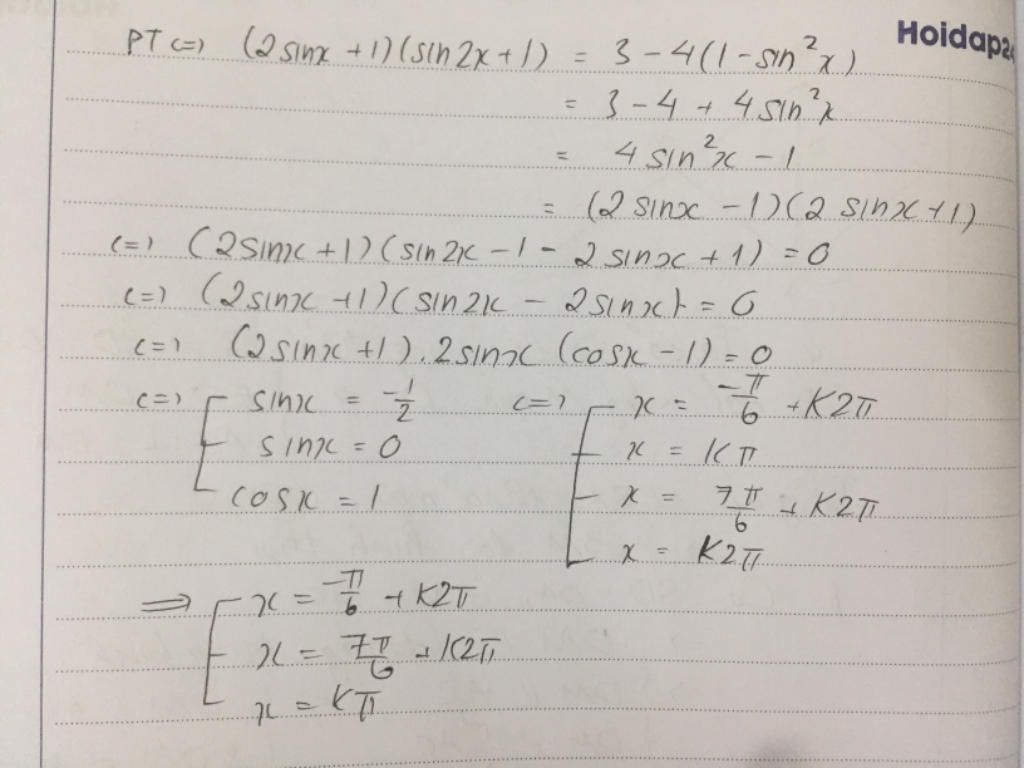 Hoidap24
PT <=> (2sinx + 1)(sin2x + 1) = 3 - 4(1 - sin²x)
= 3 - 4 + 4sin²x
= 4sin²x - 1
= (2sinx - 1)(2sinx + 1)
<=> (2sinx + 1)(sin2x - 1 - 2sinx + 1) = 0
<=> (2sinx + 1)(sin2x - 2sinx) = 0
<=> (2sinx + 1).2sinx (cosx - 1) = 0
<=> [ sinx = -1/2 <=> [ x = -π/6 + K2π
sinx = 0 x = Kπ
cosx = 1 x = 7π/6 + K2π
x = K2π
=> [ x = -π/6 + K2π
x = 7π/6 + K2π
x = Kπ